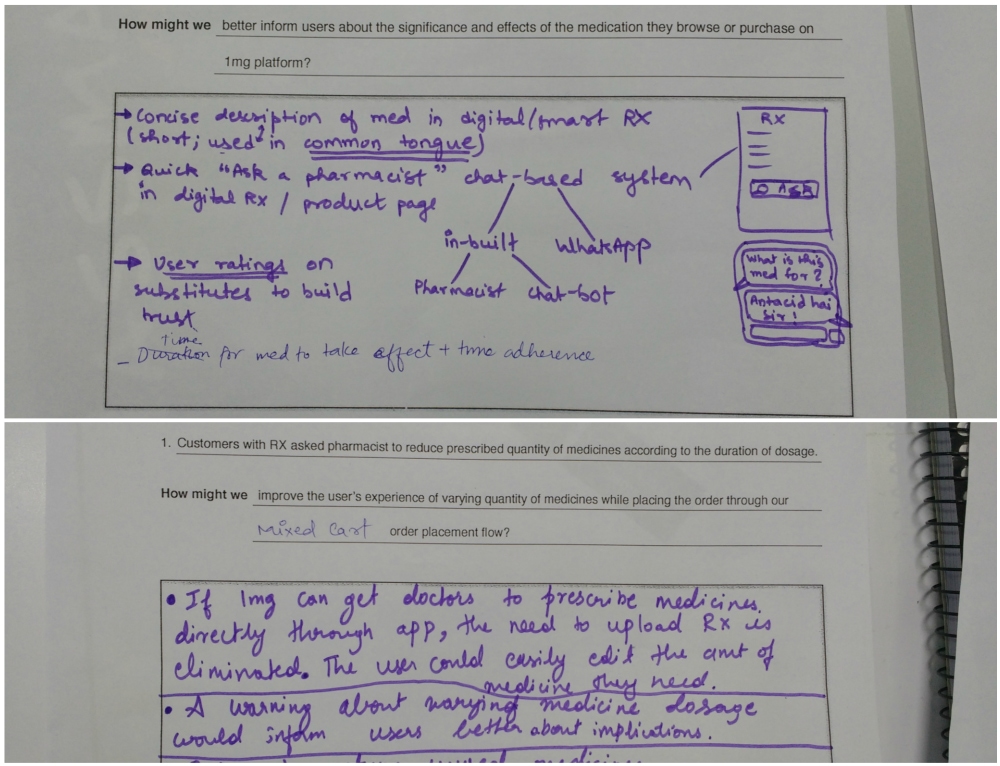 How might we better inform users about the significance and effects of the medication they browse or purchase on
1mg platform?
→ Concise description of med in digital/smart RX
(short; used in common tongue)
→ Quick "Ask a pharmacist" chat-based system
in digital Rx / product page
in-built WhatsApp
Pharmacist chat-bot
→ User ratings on
substitutes to build
trust
Time
_ Duration for med to take effect + time adherence
RX
ASK
What is this
med for?
Antacid hai
sir!
1. Customers with RX asked pharmacist to reduce prescribed quantity of medicines according to the duration of dosage.
How might we improve the user's experience of varying quantity of medicines while placing the order through our
Mixed Cart order placement flow?
• If 1mg can get doctors to prescribe medicines
directly through app, the need to upload Rx is
eliminated. The user could easily edit the amt of
medicine they need.
• A warning about varying medicine dosage
would inform users better about implications.